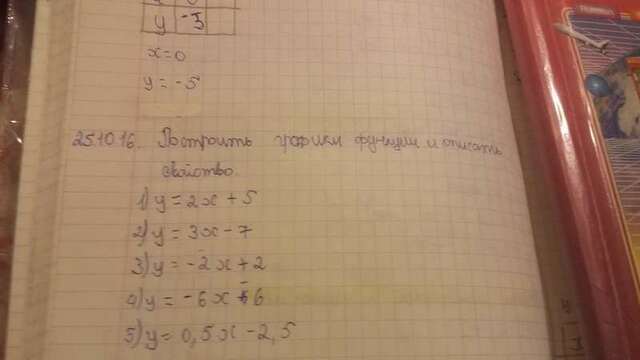 y -5
x=0
y = -5
25.10.16. Построить графики функции и описать
свойство.
1) y = 2x + 5
2) y = 3x - 7
3) y = -2x + 2
4) y = -6x - 6
5) y = 0,5x - 2,5